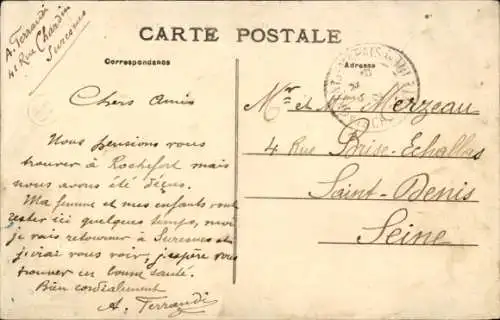 A. Terrandi
41 Rue Chardin
Suresnes
CARTE POSTALE
Correspondance
Adresse
Chers Amis
Nous pensions vous
trouver à Rochefort mais
nous avons été déçus.
Ma femme et mes enfants vont
rester ici quelques temps, moi
je vais retourner à Suresnes et
j'irai vous voir, j'espère vous
trouver en bonne santé.
Bien cordialement
A. Terrandi
Mr et Me Merzeau
4 Rue Brise-Echallas
Saint-Denis
Seine